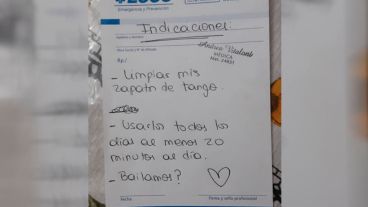 Emergencia y Prevención
Indicaciones:
Rp/
MÉDICA
- Limpiar mis
zapatos de tango.
- Usarlos todos los
días al menos 20
minutos al día.
- Bailamos?
Fecha
Firma y sello profesional